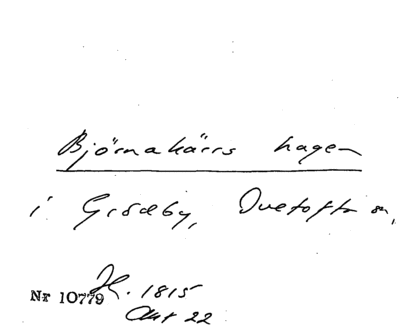 Björnakärrs hagen
i Grödby, Ovetofta sn,
Nr 10779 H. 1815
Akt 22